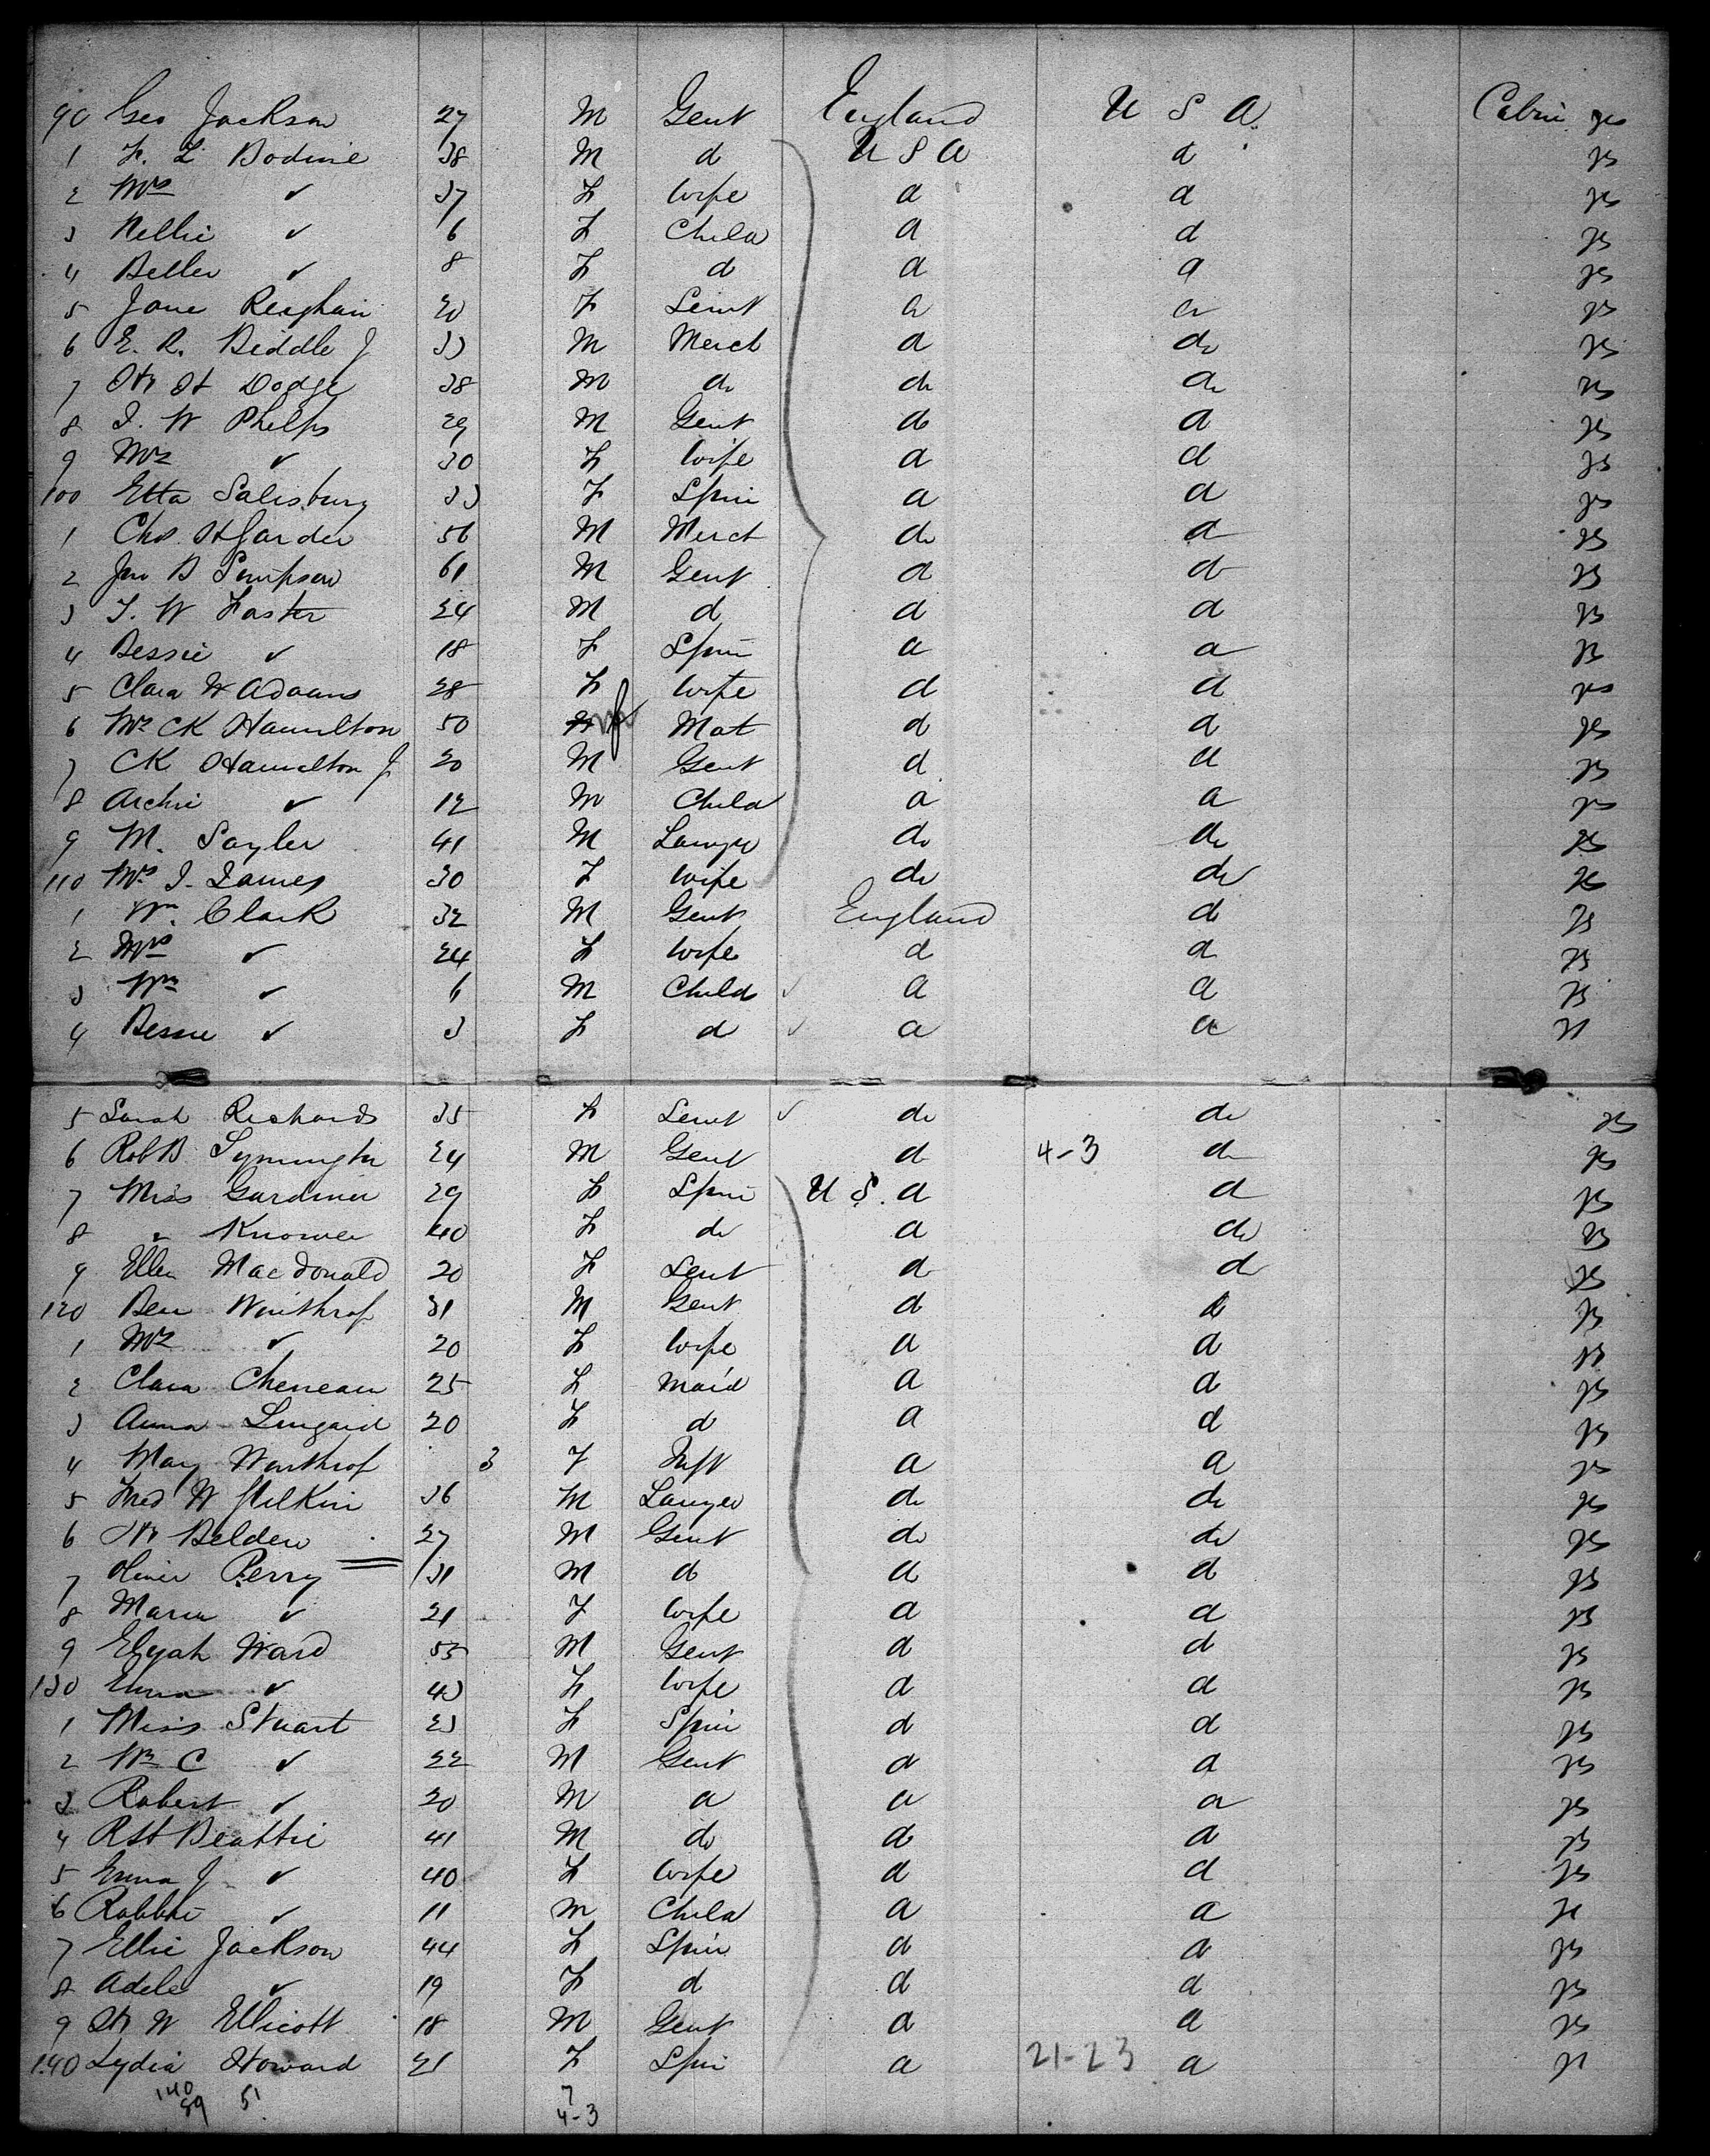 90 Geo Jackson 27 M Gent England U S A Cabin yes
1 F. L. Bodine 38 M d U S A d yes
2 Mrs ✓ 37 F Wife d d yes
3 Nellie ✓ 6 F Child d d yes
4 Belle ✓ 8 F d d d yes
5 Jane 20 F Servt d d yes
6 E. R. Biddle J 33 M Merct d do yes
7 Dodge 38 M do do do yes
8 I. W Phelps 29 M Gent do d yes
9 Mrs ✓ 30 F Wife d d yes
100 Etta Salisbury 33 F Spin d d yes
1 Chs. H Garder 56 M Merct do d yes
2 Jno B Simpson 61 M Gent d d yes
3 T. W Foster 24 M d d d yes
4 Bessie ✓ 18 F Spin d d yes
5 Clara W Adams 28 F Wife d d yes
6 Mrs CK Hamilton 50 f Mat d d yes
7 CK Hamilton J 20 M Gent d d yes
8 Archie ✓ 12 M Child d d yes
9 M. Sayler 41 M Lawyer do do yes
110 Mrs I. James 30 F Wife do do yes
1 Wm. Clark 32 M Gent England d yes
2 Mrs ✓ 24 F Wife d d yes
3 Wm ✓ 6 M Child ✓ d d yes
4 Bessie ✓ 3 F d ✓ d d yes
5 Sarah Richards 35 F Servt ✓ do do yes
6 Robt B Symington 24 M Gent d 4-3 d yes
7 Miss Gardiner 29 F Spin U S. A d yes
8 " Knower 40 F do d do yes
9 Ellen MacDonald 20 F Servt d d yes
120 Ben Winthrop 31 M Gent d d yes
1 Mrs ✓ 20 F Wife d d yes
2 Clara Cheneau 25 F Maid d d yes
3 Anna Lingard 20 F d d d yes
4 May Winthrop 3 F Inft d d yes
5 Fred W 36 M Lawyer do do yes
6 Wm Belden 27 M Gent do do yes
7 Oliver Perry 31 M d d d yes
8 Maria ✓ 21 F Wife d d yes
9 Elijah Ward 55 M Gent d d yes
130 Emma ✓ 43 F Wife d d yes
1 Miss Stuart 23 F Spin d d yes
2 Wm C ✓ 22 M Gent d d yes
3 Robert ✓ 20 M d d d yes
4 RH Beattie 41 M do d d yes
5 Emma J ✓ 40 F Wife d d yes
6 Robbie ✓ 11 M Child d d yes
7 Ellie Jackson 44 F Spin d d yes
8 Adele ✓ 19 F d d d yes
9 W Ellicott 18 M Gent d d yes
140 Lydia Howard 21 F Spin d 21-23 d yes
140 7
89 51 4-3